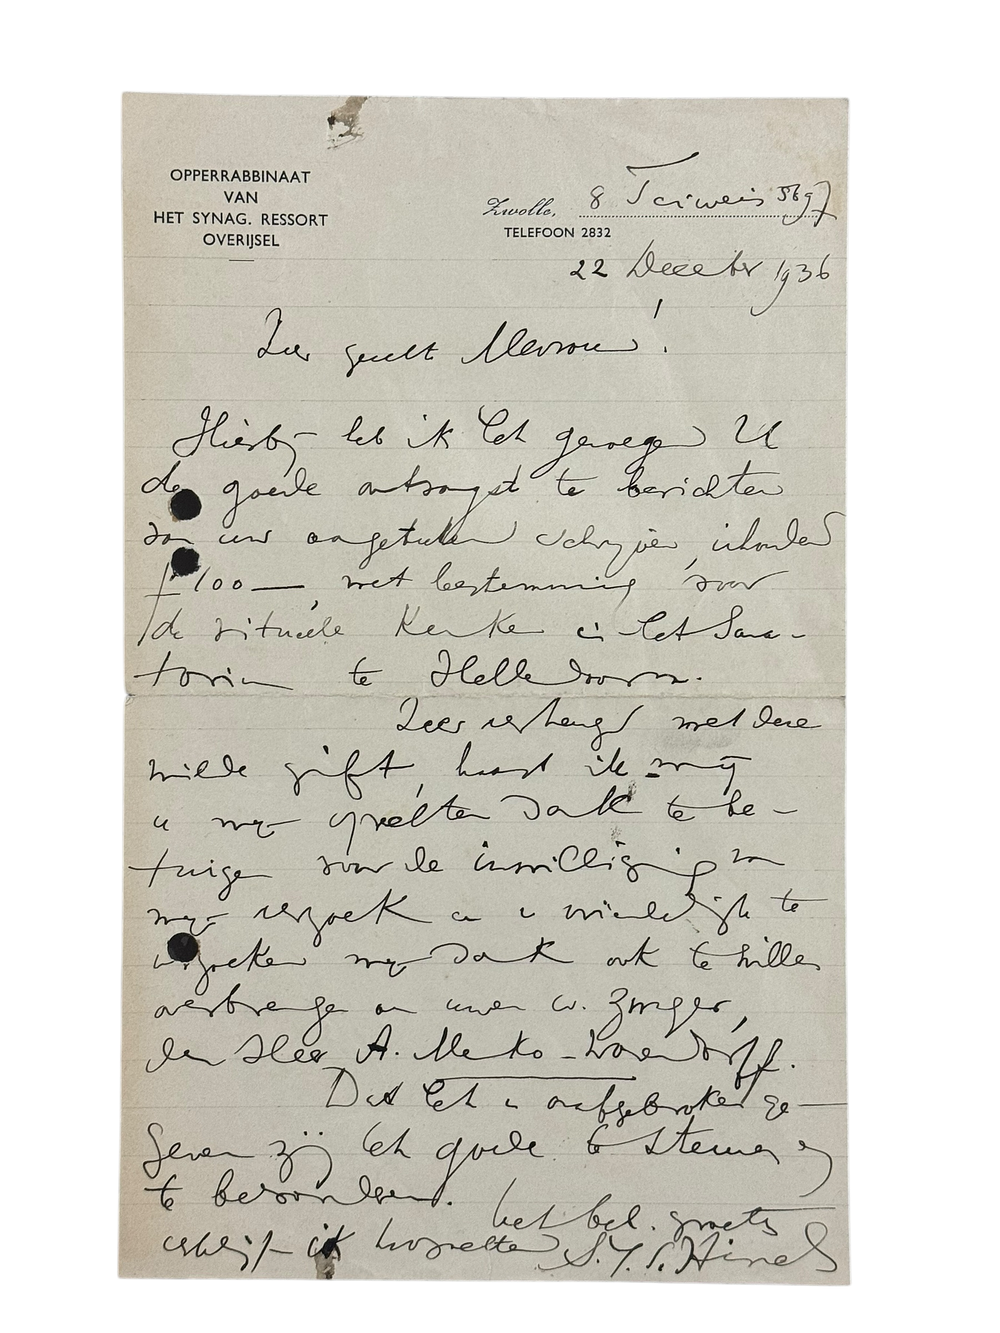 OPPERRABBINAAT
VAN
HET SYNAG. RESSORT
OVERIJSEL
Zwolle, 8 5697
TELEFOON 2832
22 December 1936
Zeer geachte Mevrouw!
Hierbij heb ik het genoegen U
de goede ontvangst te berichten
van uw aangetekend schrijven, inhoudend
f 100—, met bestemming voor
de rituele Keuken in het Sana-
torium te Hellendoorn.
Zeer verheugd met deze
milde gift, haast ik mij
u mijn oprechten dank te be-
tuigen voor de inwilliging van
mijn verzoek en u vriendelijk te
verzoeken mijn dank ook te willen
overbrengen aan uwen
den Heer A. 
Dat het u onafgebroken ge-
geven zij het goede te steunen en
te bevorderen.
Met bel. groeten
verblijf ik hoogachtend S. J. S. Hirsch